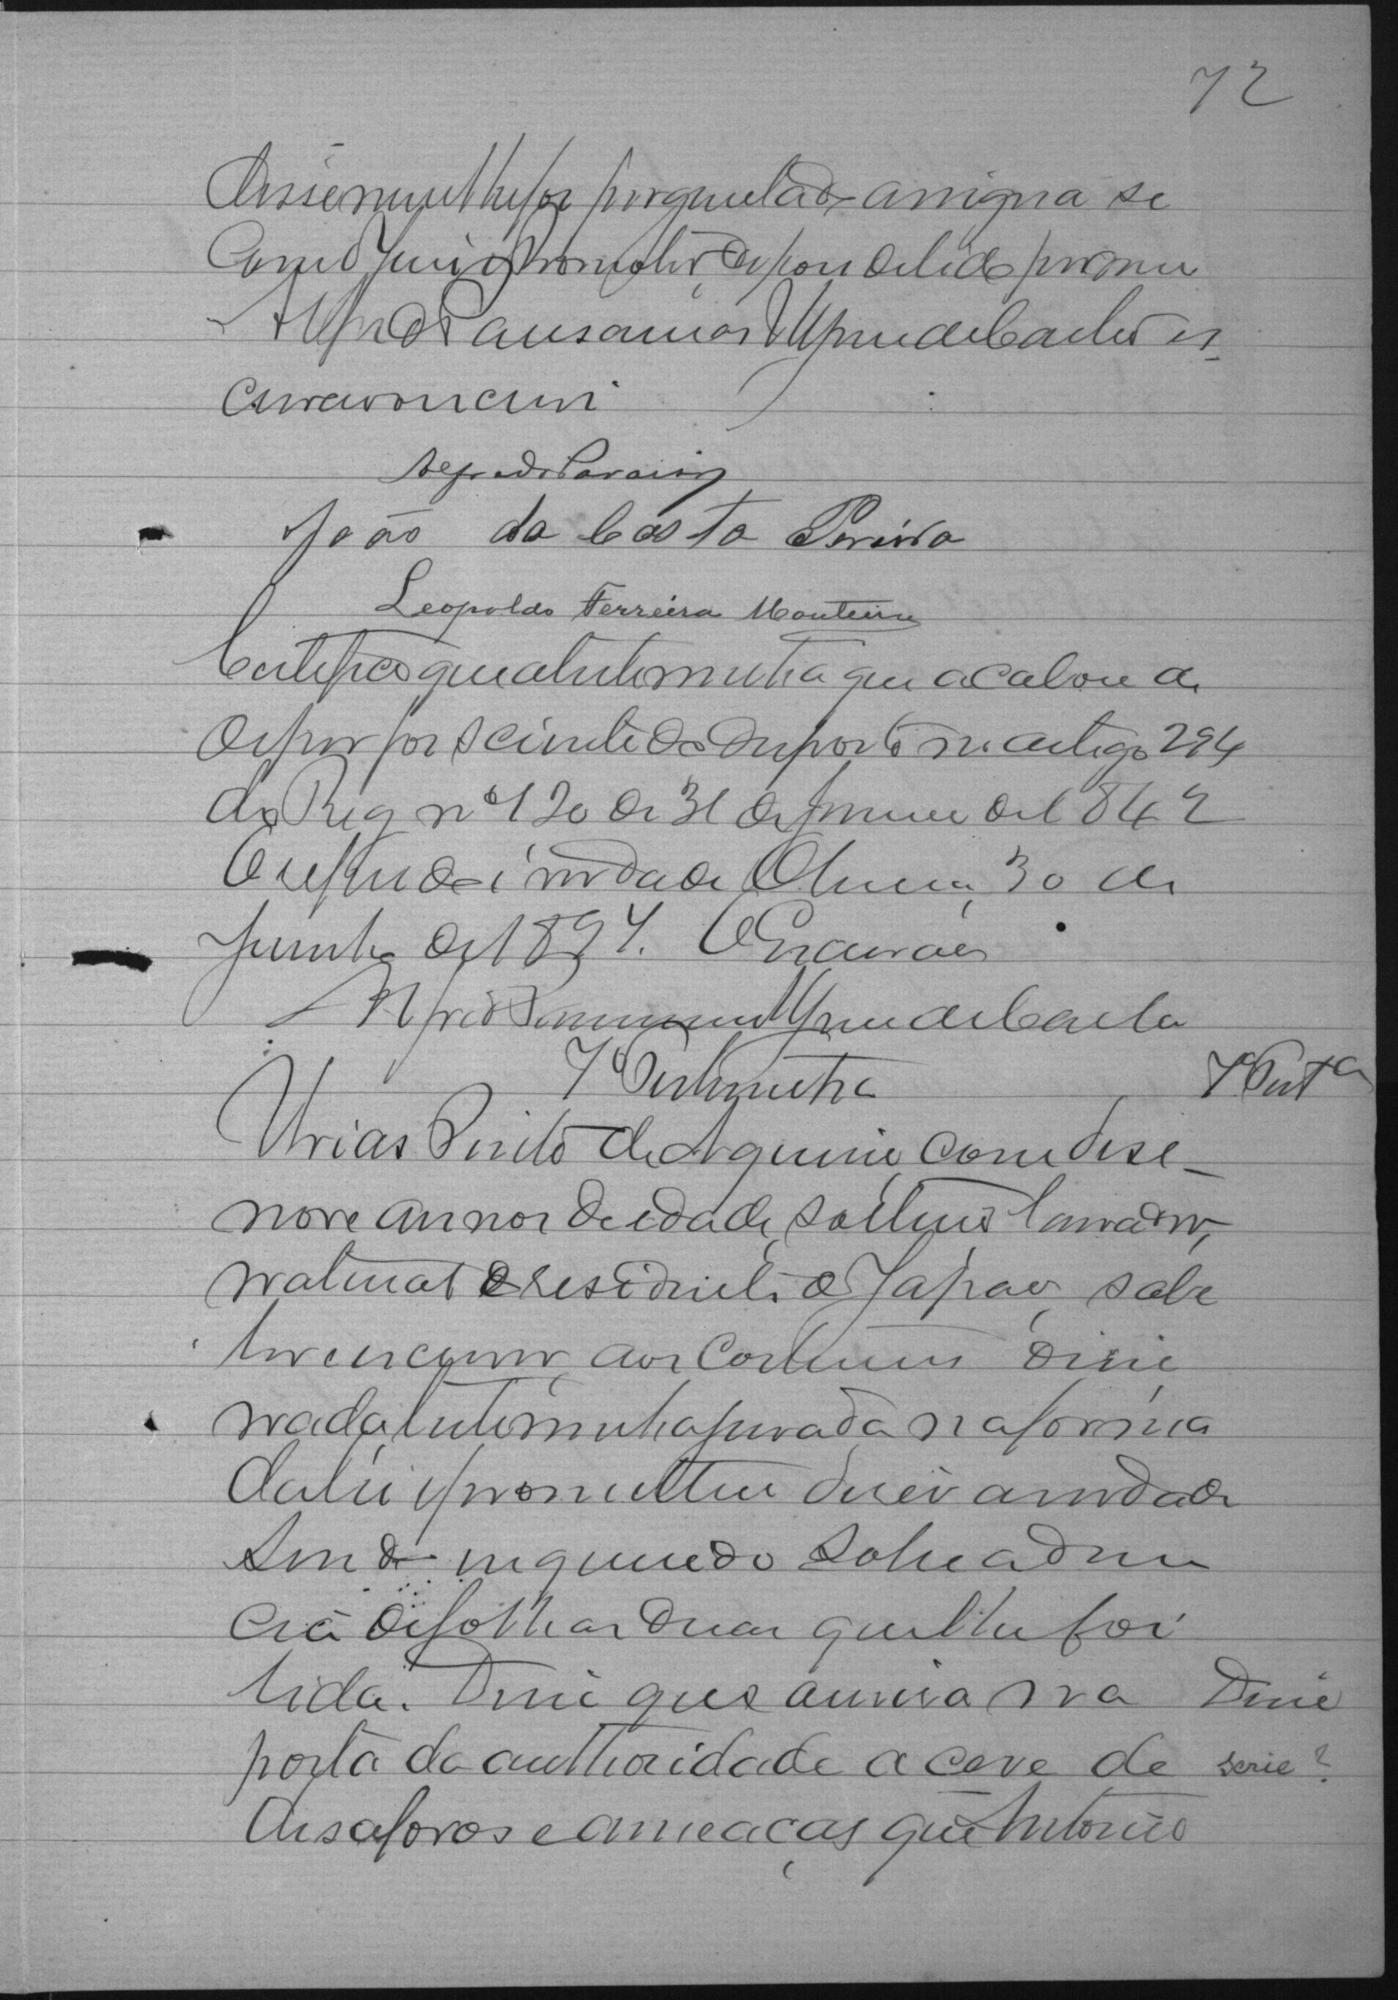 72
disse nem lhe foi perguntado assigna se
com o Juiz o Promotor, depois de lido por mim
Alfredo Pausanias es-
crivão escrevi
Alfredo
João da Costa Pereira
Leopoldo Ferreira Monteiro
Certifico que a testemunha que acabou de
depor foi sciente do disposto no artigo 294
do Reg nº 120 de 31 de Janeiro de 1842
O referido é verdade 30 de
Junho de 1894. O Escrivão
Alfredo Pausanias
7ª Testemunha
7ª Testª
Urias Pinto de com dese-
nove annos de edade, solteiro lavrador,
natural e residente de sabe
ler e escrever, aos costumes disse
nada, testemunha jurada na forma
da lei e prometteu dizer a verdade
Sendo inquirido sobre a denun
cia de folhas duas que lhe foi
lida. Disse que ouvira na
Disse
porta da authoridade a cerve de
serie?
desaforos e ameaças que Antonio